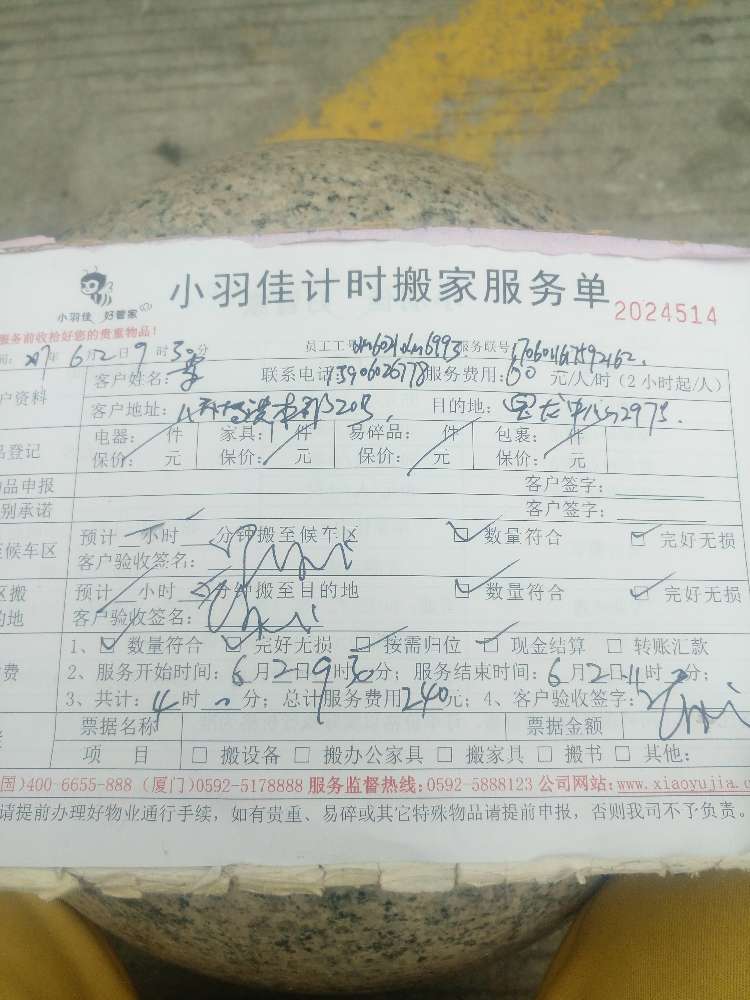 小羽佳计时搬家服务单
小羽佳 好管家
2024514
服务前收拾好您的贵重物品!
间: 年 6月2日9时30分 员工工号 服务联号:
户资料 客户姓名: 李 联系电话:13906026778 服务费用:60元/人/时(2小时起/人)
客户地址: 目的地:
品登记 电器: 件 家具: 件 易碎品: 件 包裹: 件
保价: 元 保价: 元 保价: 元 保价: 元
物品申报 客户签字:
别承诺 客户签字:
至候车区 预计 小时 分钟搬至候车区 ☑ 数量符合 ☑ 完好无损
客户验收签名:
区搬 预计 小时 分钟搬至目的地 ☑ 数量符合 ☑ 完好无损
的地 客户验收签名:
1、☑ 数量符合 ☑ 完好无损 ☑ 按需归位 ☑ 现金结算 □ 转账汇款
费 2、服务开始时间:6月2日9时30分;服务结束时间:6月2日11时 分;
3、共计:4时 分;总计服务费用240元;4、客户验收签字:
票据名称 票据金额
项 目 □ 搬设备 □ 搬办公家具 □ 搬家具 □ 搬书 □ 其他:
国)400-6655-888 (厦门)0592-5178888 服务监督热线:0592-5888123 公司网站:www.xiaoyujia.c
请提前办理好物业通行手续,如有贵重、易碎或其它特殊物品请提前申报,否则我司不予负责。